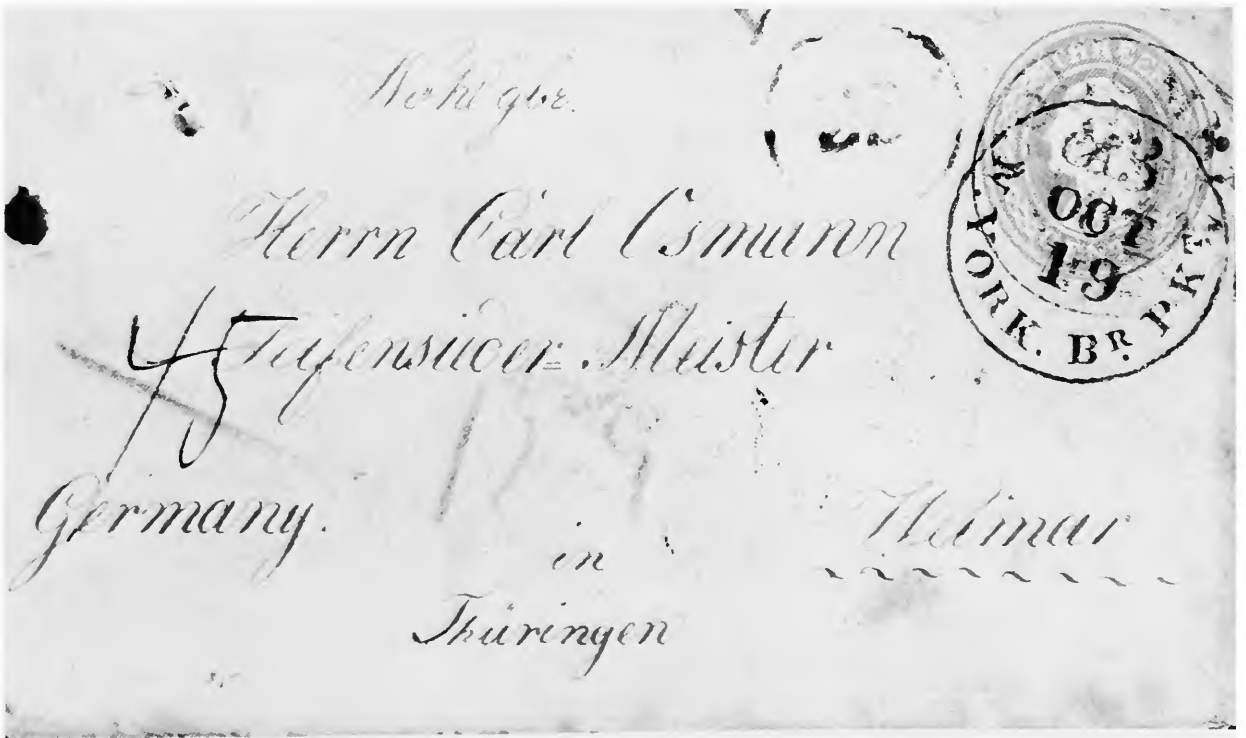 Wohlgbr.
Herrn Carl Osmunn
Seifensieder=Meister
45
Germany.
in
Weimar
Thüringen
N. YORK. BR. PKT.
OCT
19